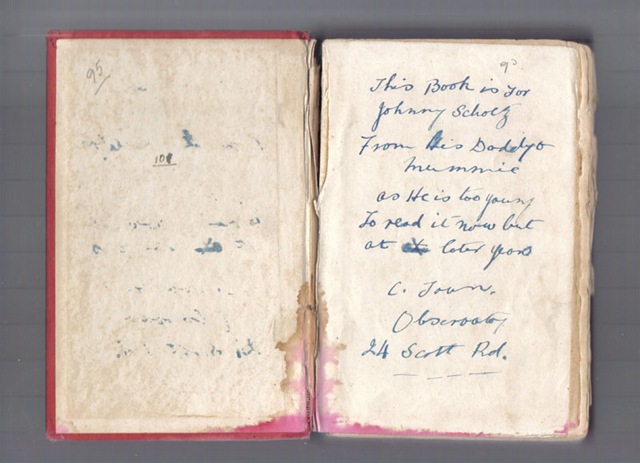 95
101
This Book is for
Johnny Scholtz
From his Daddy &
Mummie
as He is too young
To read it now but
at later years
C. Town.
Observatory
24 Scott Rd.